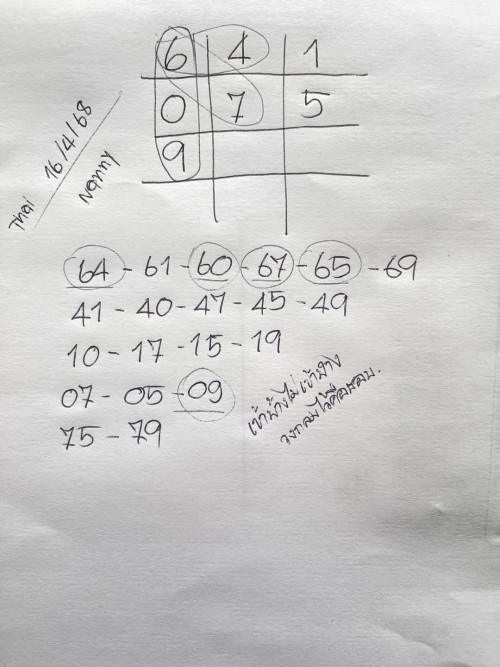 Thai 16/4/68
Nanny
6 4 1
0 7 5
9
64 - 61 - 60 - 67 - 65 - 69
41 - 40 - 47 - 45 - 49
10 - 17 - 15 - 19
07 - 05 - 09
75 - 79
เข้าบ้างไม่เข้าบ้าง
วงกลมไว้คือชอบ.